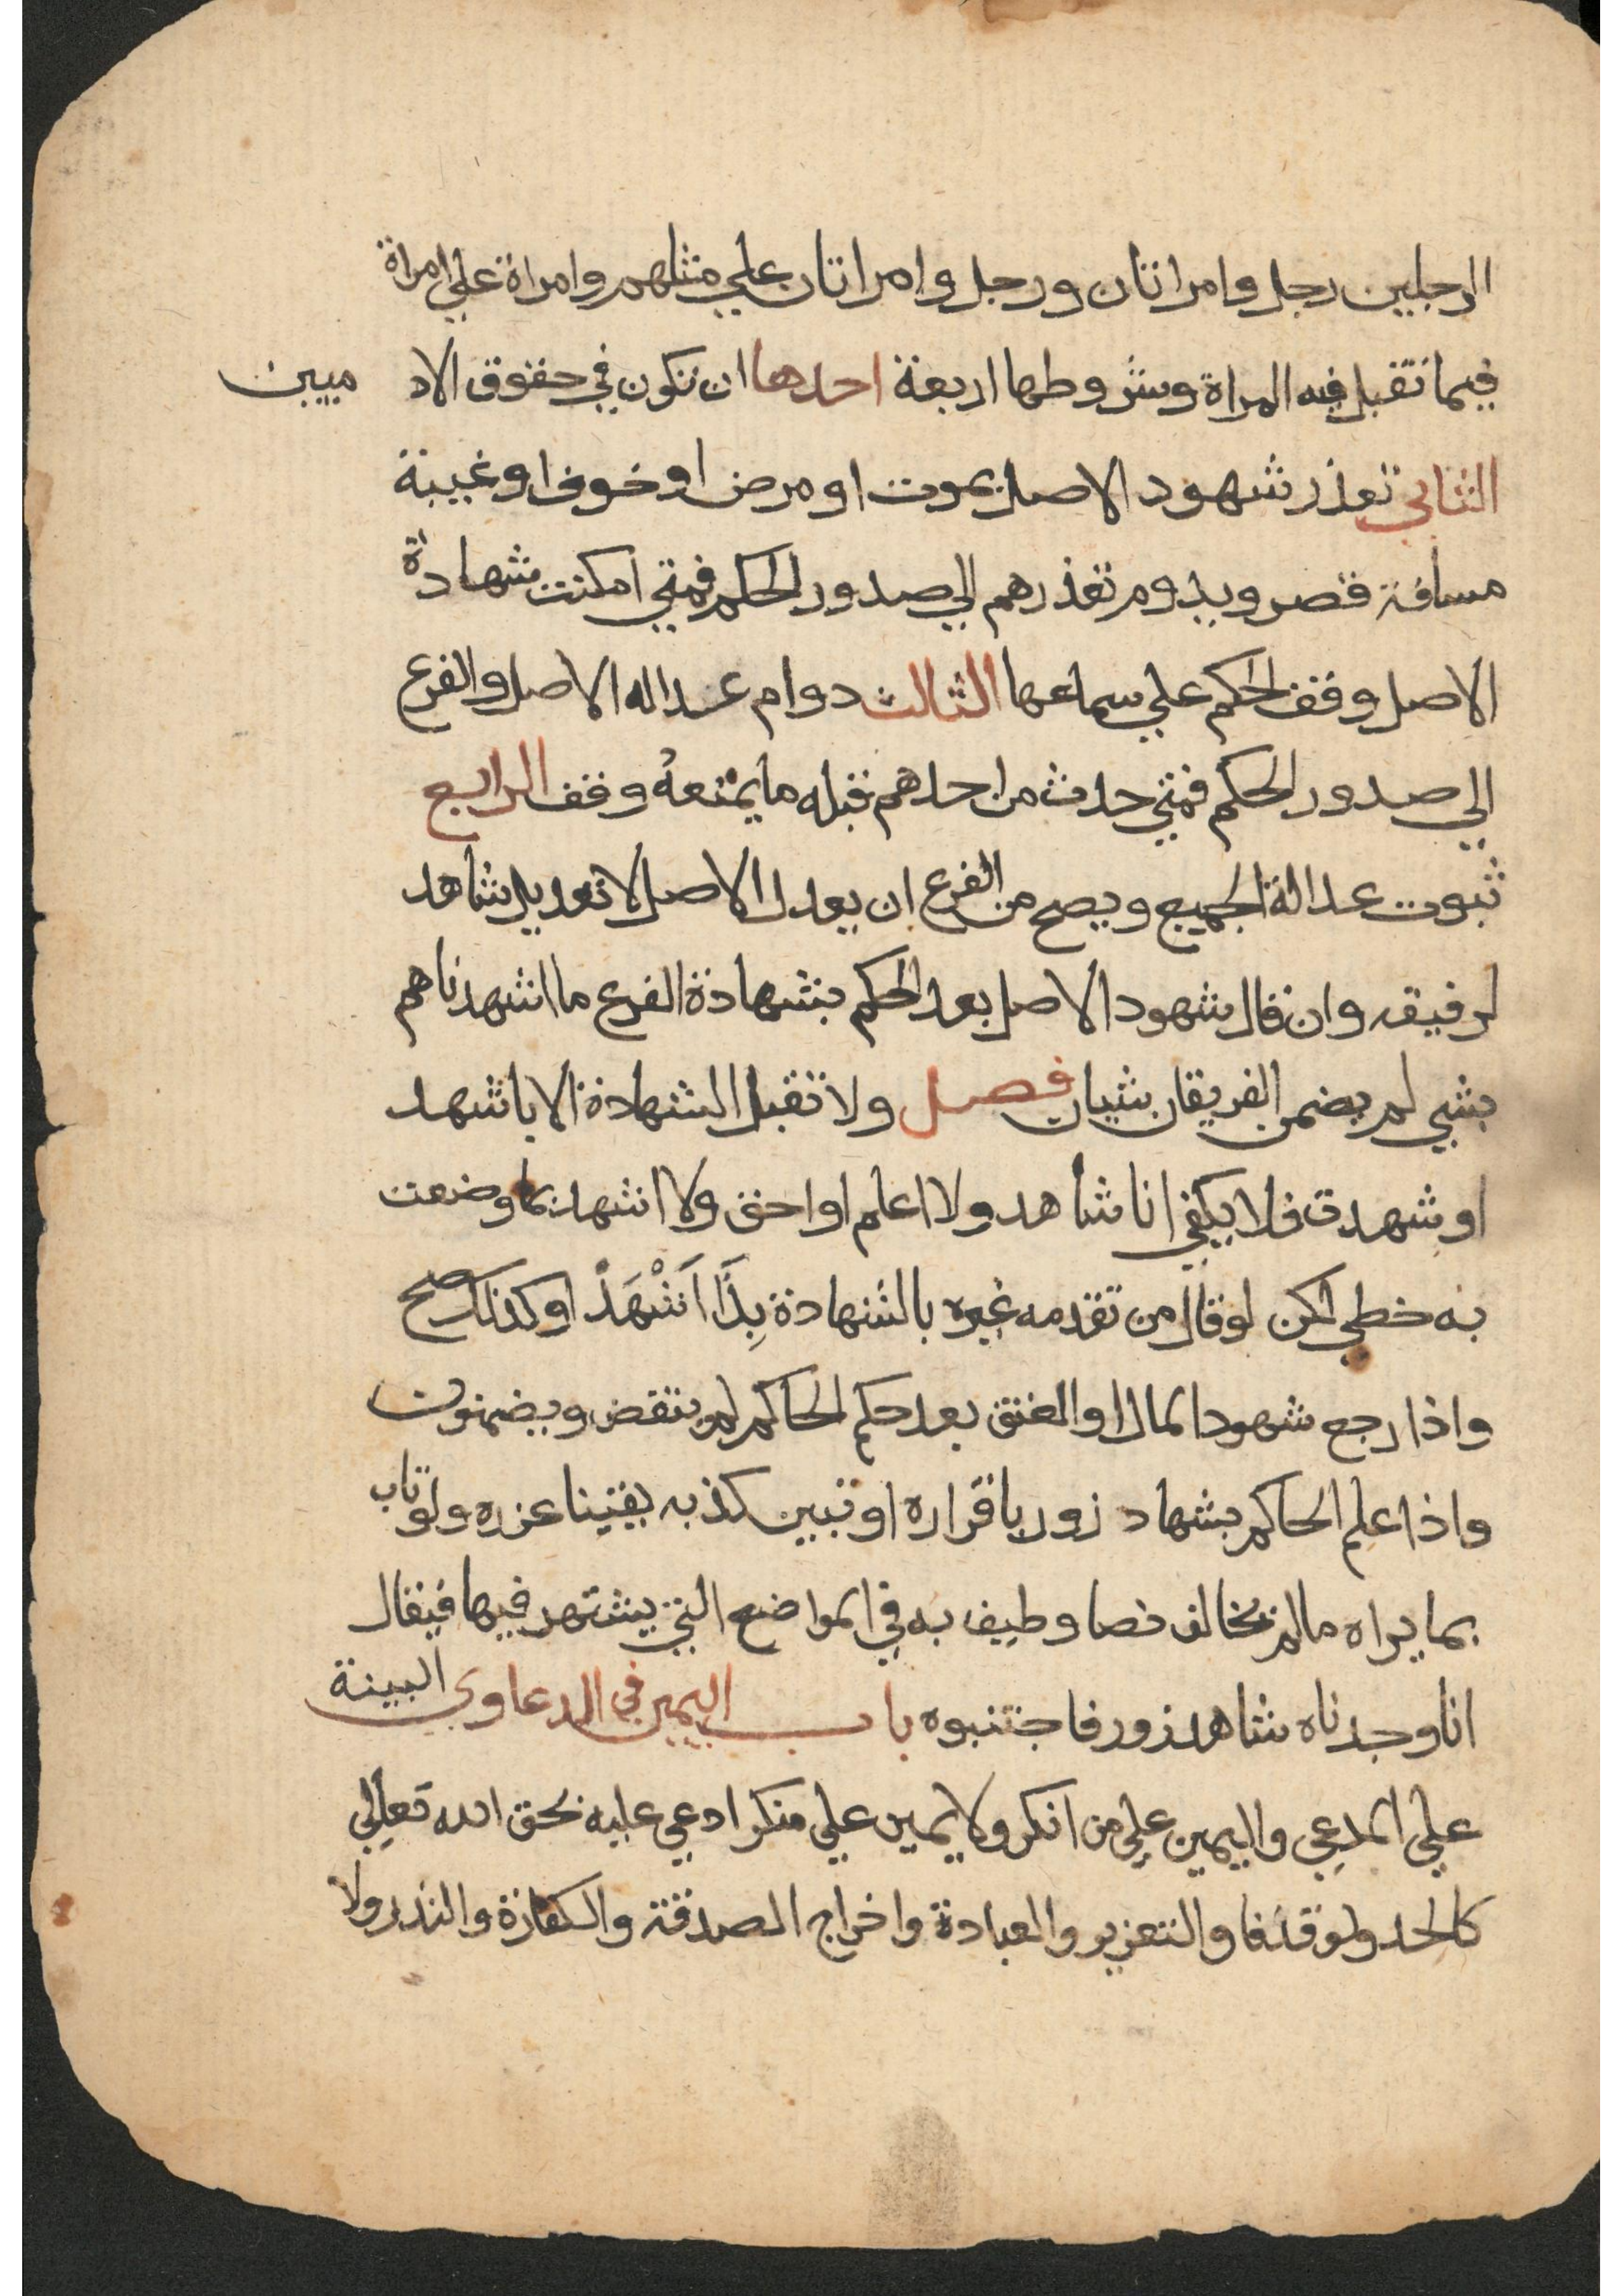 الرجلين رجل وامراتان ورجل وامراتان علي مثلهم وامراة علي امراة
فيما تقبل فيه المراة وشروطها اربعة احدها ان تكون في حقوق الاد ميين
الثاني تعذر شهود الاصل بموت او مرض او خوف او غيبة
مسافة قصر ويدوم تعذرهم الي صدور الحكم فمتي امكنت شهادة
الاصل وقف الحكم علي سماعها الثالث دوام عدالة الاصل والفرع
الي صدور الحكم فمتي حدث من احدهم قبله ما يمنعه وقف الرابع
ثبوت عدالة الجميع ويصح من الفرع ان يعدل الاصل لا تعديل شاهد
لرفيقه وان قال شهود الاصل بعد الحكم بشهادة الفرع ما اشهدناهم
بشي لم يضمن الفريقان شيان فصل ولا تقبل الشهادة الا باشهد
او شهدت فلا يكفي انا شاهد ولا اعلم او احق ولا اشهد بما وضعت
به خطي لكن لو قال من تقدمه غيره بالشهادة بِذَا اَشْهَدُ او كذلك صح
واذا رجع شهود المال او العتق بعد حكم الحاكم لم ينتقض ويضمنون
واذا علم الحاكم بشهاد زور باقراره او تبين كذبه يقينا عزره ولو تاب
بما يراه مالم يخالف نصا وطيف به في المواضع التي يشتهر فيها فيقال
انا وجدناه شاهد زور فاجتنبوه باب اليمين في الدعاوي البينة
علي المدعي واليمين علي من انكر ولا يمين علي منكر ادعي عليه بحق الله تعالي
كالحد ولو قذفا والتعزير والعبادة واخراج الصدقة والكفارة والنذر ولا